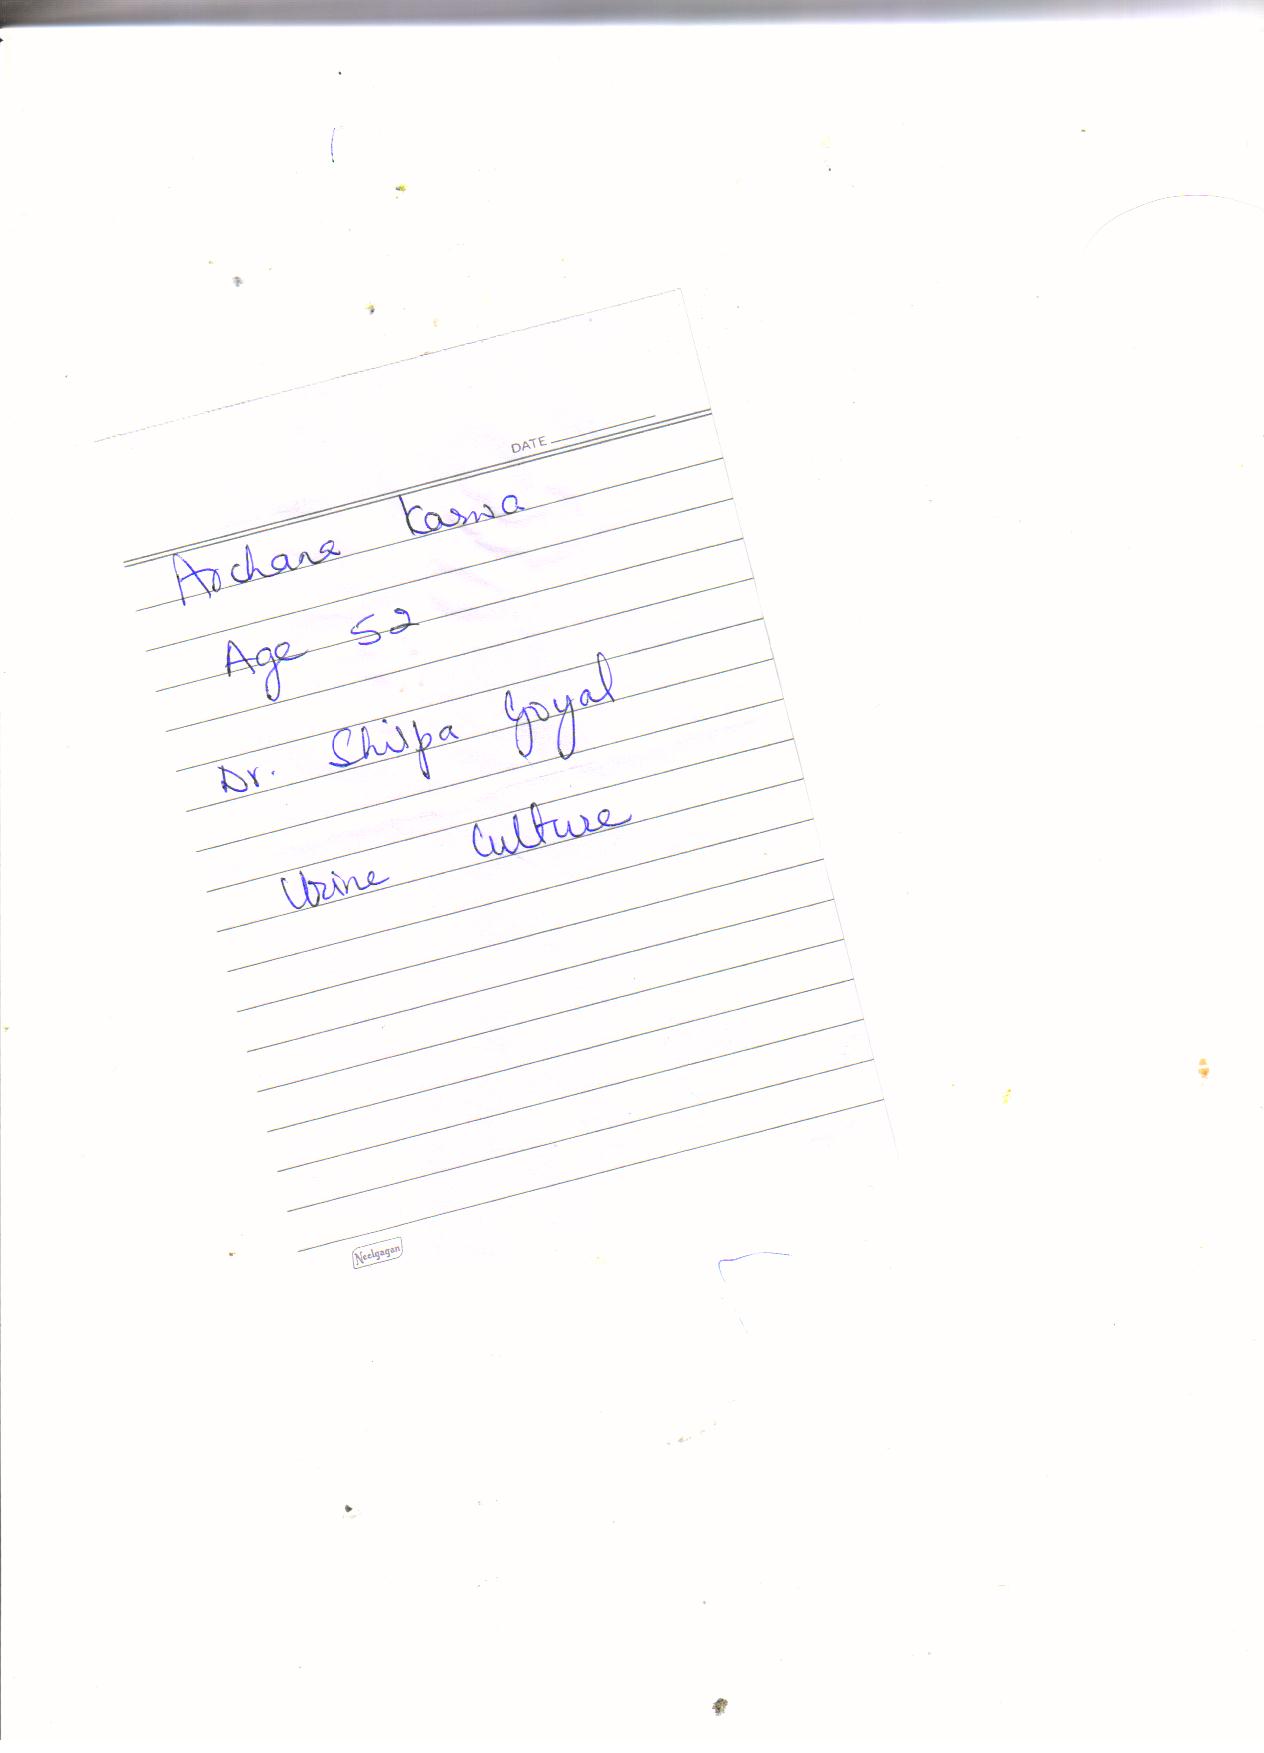 DATE
Archana Karwa
Age 52
Dr. Shilpa Goyal
Urine Culture
Neelgagan